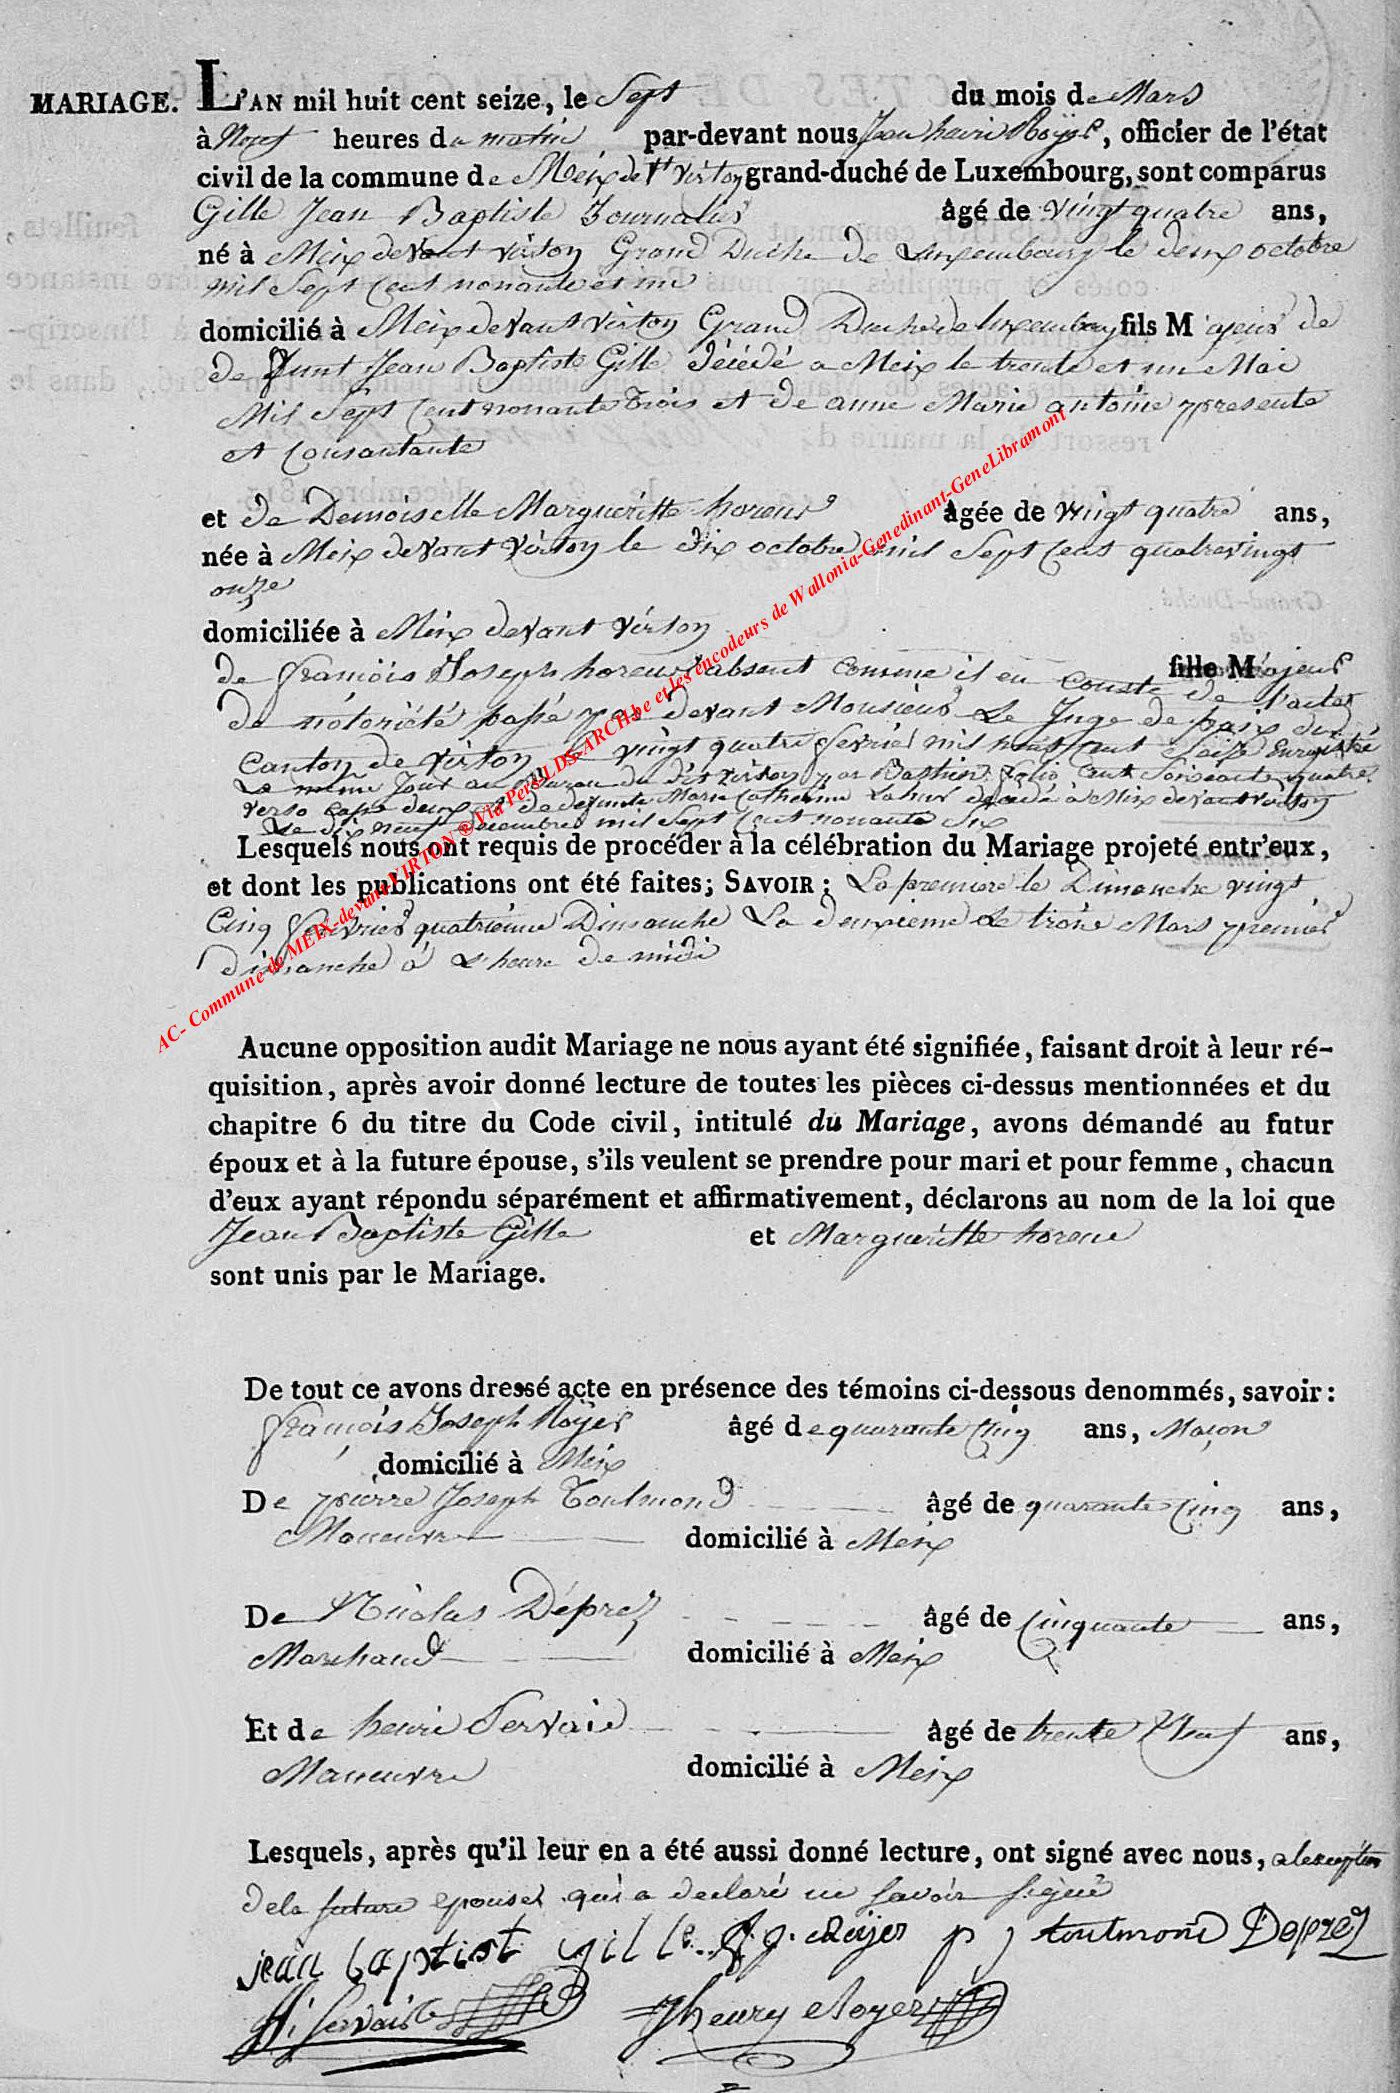 MARIAGE.
L'AN mil huit cent seize, le Sept du mois de Mars
à Neuf heures du matin par-devant nous Jean henri Roÿer, officier de l'état
civil de la commune de Meix devt virton grand-duché de Luxembourg, sont comparus
Gille Jean Baptiste Journalier âgé de vingt quatre ans,
né à Meix devant virton Grand Duché de Luxembourg le deux octobre
mil Sept Cent nonante et un
domicilié à Meix devant virton Grand Duché de luxembourg fils M'ajeur de
defunt Jean Baptiste Gille décédé a Meix le trente et un Mai
Mil Sept Cent nonante Trois et de anne Marie antoine presente
et Consantante
et de Demoiselle Margueritte horeur âgée de vingt quatre ans,
née à Meix devant virton le dix octobre mil Sept Cent quatrevingt
onze
domiciliée à Meix devant virton
fille M'ajeur
de françois Joseph horeur absent comme il en Conste de l'acte
de nótoriété passé par devant Monsieur Le Juge de paix du
Canton de virton Le vingt quatre fevrier mil huit Cent Seize Enregistré
Le même Jour au bureau du dit virton par Bastien folio Cent Soixante quatre
verso Case deux et de defunte Marie Catherine Lahur décédé à Meix devant virton
Le dix neuf decembre mil Sept Cent nonante Six
Lesquels nous ont requis de procéder à la célébration du Mariage projeté entr'eux,
et dont les publications ont été faites; SAVOIR: La premiere le Dimanche vingt
Cinq fevrier quatrieme Dimanche La deuxieme Le trois Mars premier
dimanche à L'heure de midi
Aucune opposition audit Mariage ne nous ayant été signifiée, faisant droit à leur ré-
quisition, après avoir donné lecture de toutes les pièces ci-dessus mentionnées et du
chapitre 6 du titre du Code civil, intitulé du Mariage, avons démandé au futur
époux et à la future épouse, s'ils veulent se prendre pour mari et pour femme, chacun
d'eux ayant répondu séparément et affirmativement, déclarons au nom de la loi que
Jean Baptiste Gille et Margueritte horeur
sont unis par le Mariage.
De tout ce avons dressé acte en présence des témoins ci-dessous denommés, savoir:
françois Joseph Roÿer âgé de quarante Cinq ans, Maçon
domicilié à Meix
De pierre Joseph Toulmond âgé de quarante Cinq ans,
Maneuvre domicilié à Meix
De Nicolas Déprez âgé de Cinquante ans,
Marchand domicilié à Meix
Et de henri Servais âgé de trente Neuf ans,
Maneuvre domicilié à Meix
Lesquels, après qu'il leur en a été aussi donné lecture, ont signé avec nous, alexception
dela future epouse qui a declaré ne Savoir signer
jean baptist gille f. j. Roÿer p j toulmond Deprez
H: Servais J henry Royer
AC- Commune de MEIX-devant-VIRTON ® Via Pers-LDS-ARCH.be et les encodeurs de Wallonia-Genedinant-GeneLibramont